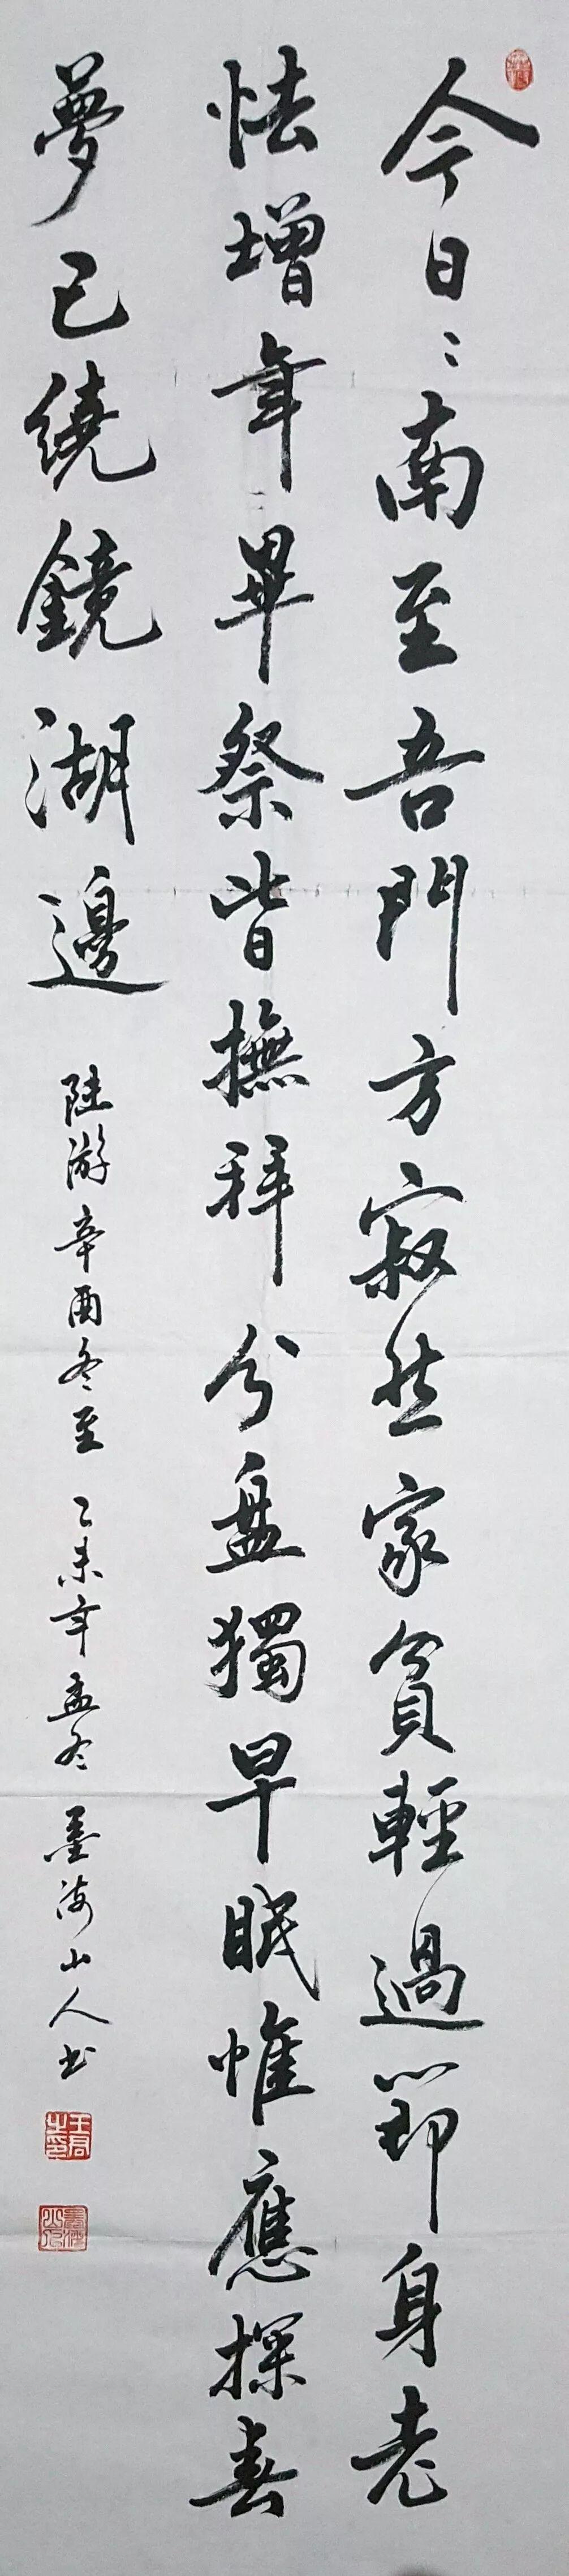 今日〻南至吾門方寂然家貧輕過節身老
怯增年畢祭皆撫拜分盘獨早眠惟應探春
夢已繞鏡湖邊
陆游辛酉冬至 乙未年孟冬 墨海山人书
王君之印